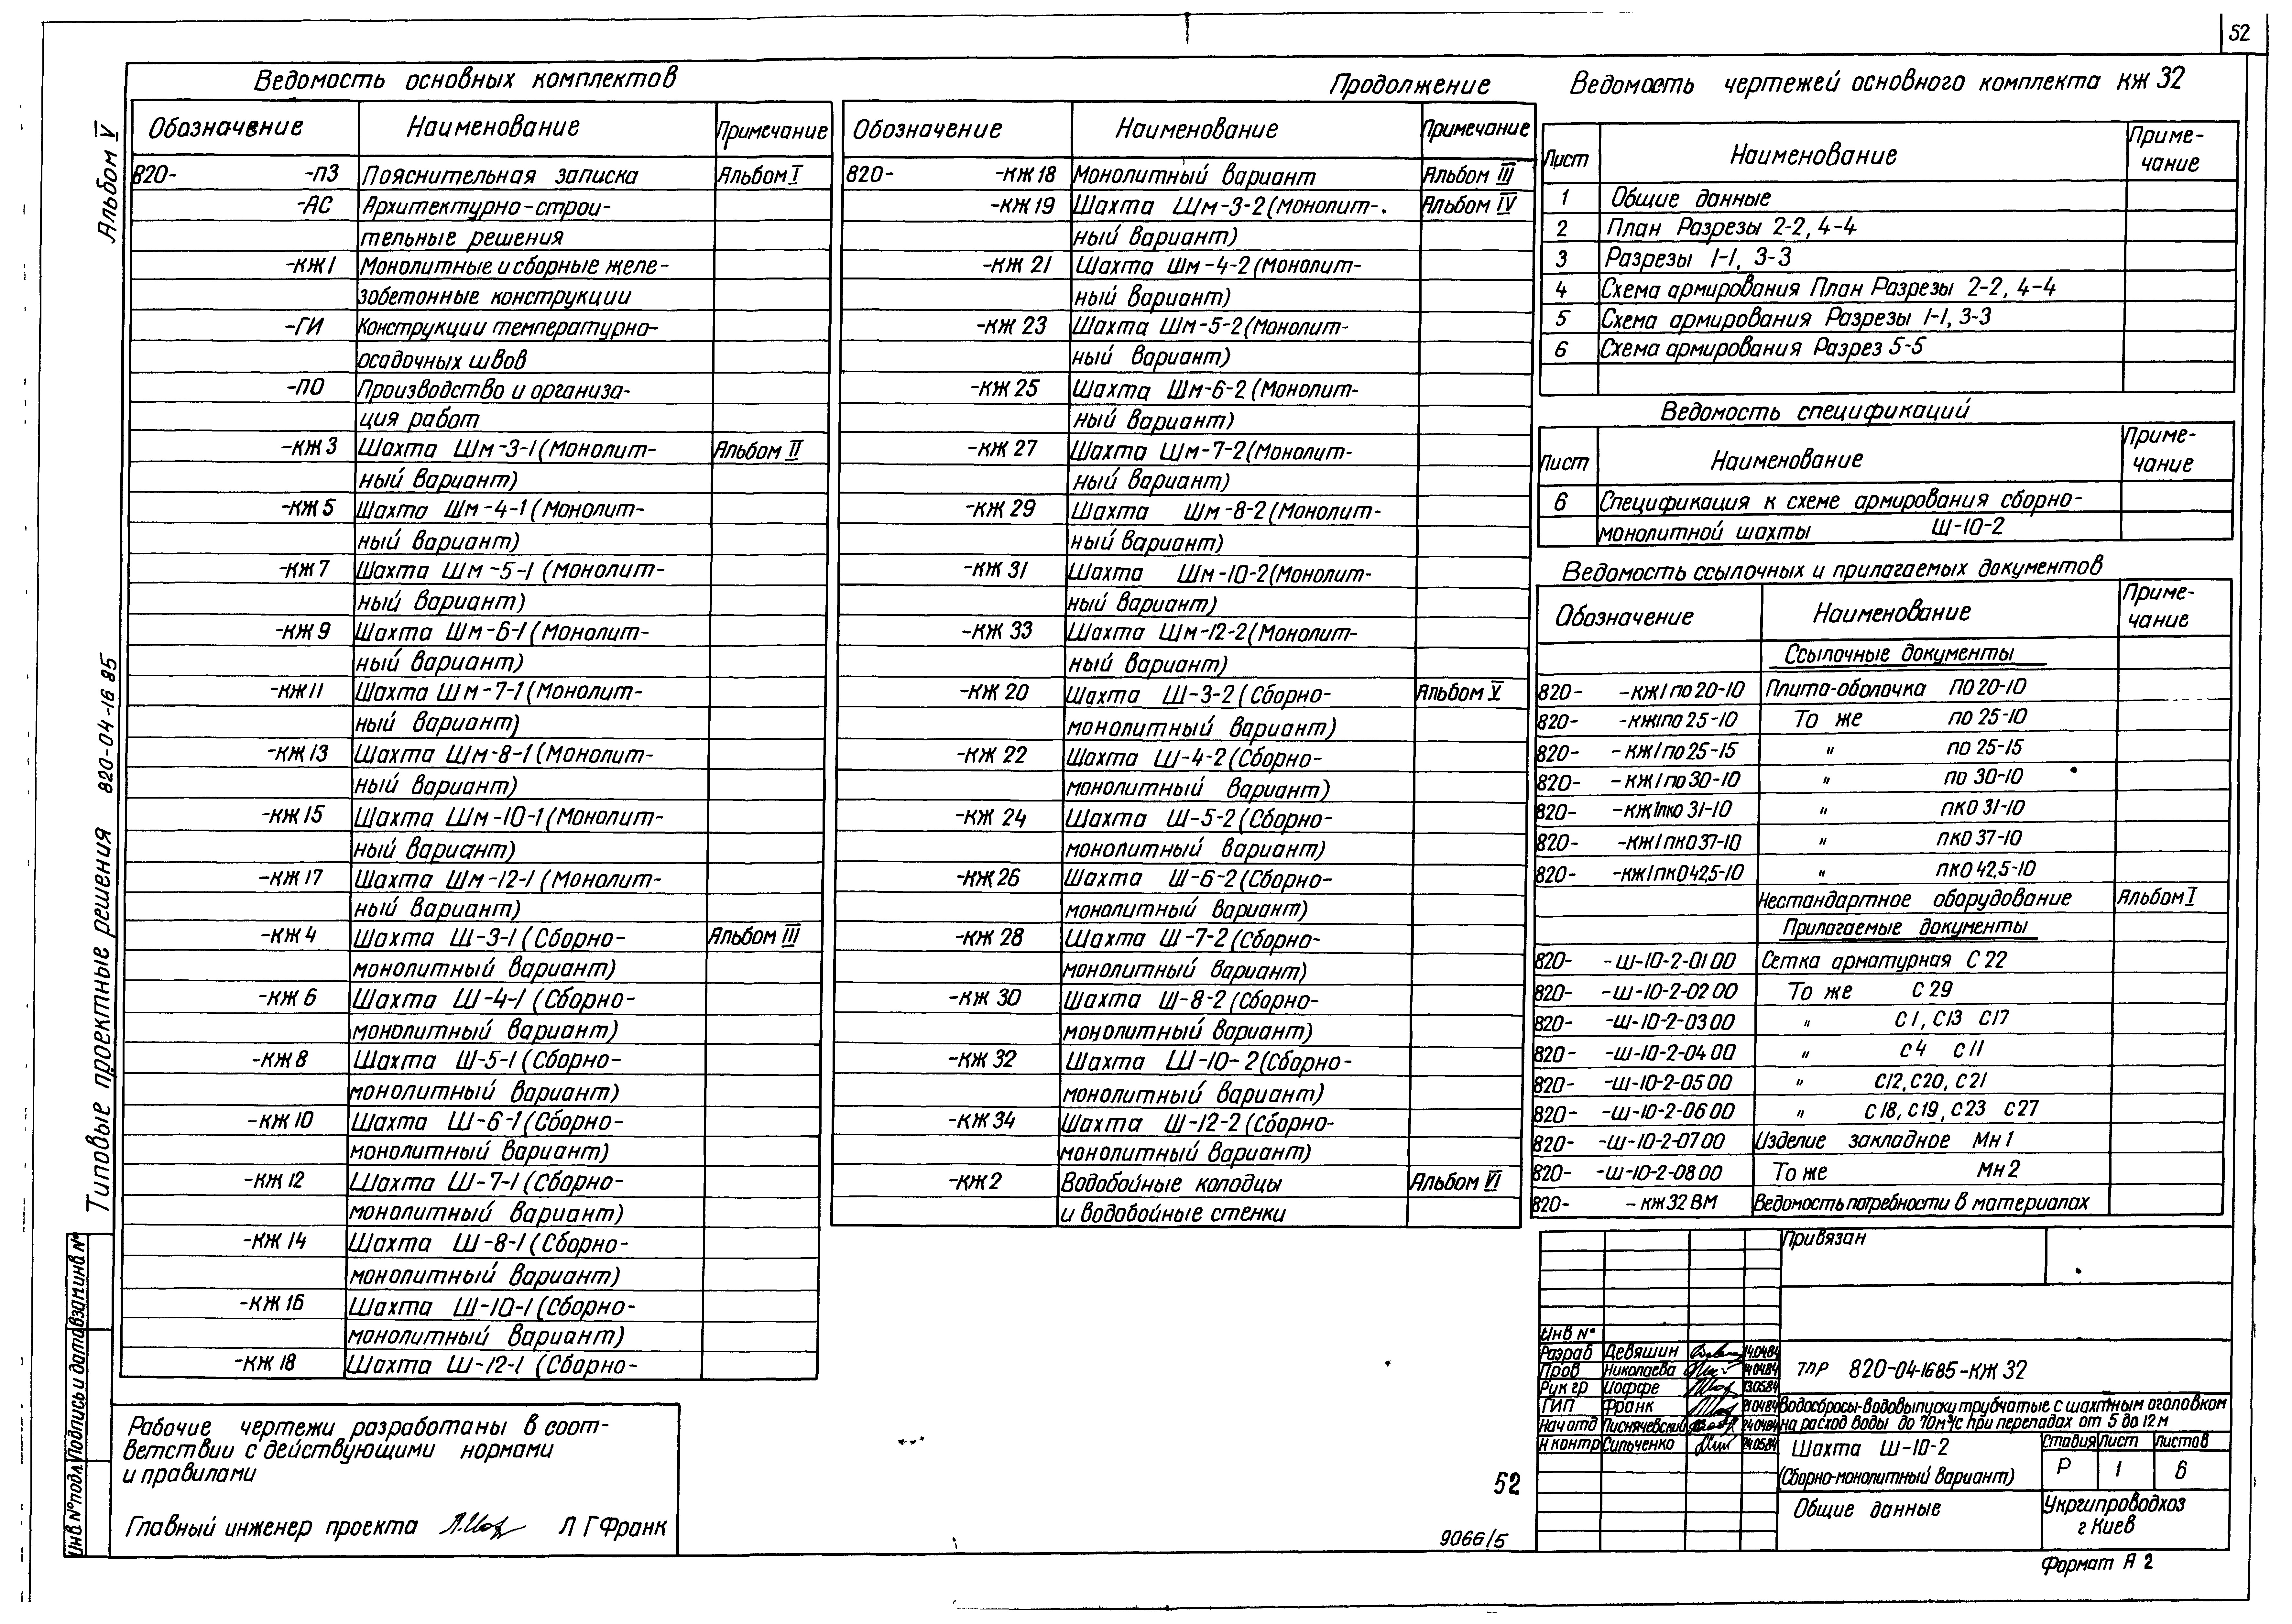 52
Альбом V
Типовые проектные решения 820-04-16 85
Ведомость основных комплектов
Обозначение Наименование Примечание
820- -ПЗ Пояснительная записка Альбом I
-АС Архитектурно-строи-
тельные решения
-КЖ1 Монолитные и сборные желе-
зобетонные конструкции
-ГИ Конструкции температурно-
осадочных швов
-ПО Производство и организа-
ция работ
-КЖ3 Шахта Шм-3-1 (Монолит- Альбом II
ный вариант)
-КЖ5 Шахта Шм-4-1 (Монолит-
ный вариант)
-КЖ7 Шахта Шм-5-1 (Монолит-
ный вариант)
-КЖ9 Шахта Шм-6-1 (Монолит-
ный вариант)
-КЖ11 Шахта Шм-7-1 (Монолит-
ный вариант)
-КЖ13 Шахта Шм-8-1 (Монолит-
ный вариант)
-КЖ15 Шахта Шм-10-1 (Монолит-
ный вариант)
-КЖ17 Шахта Шм-12-1 (Монолит-
ный вариант)
-КЖ4 Шахта Ш-3-1 (Сборно- Альбом III
монолитный вариант)
-КЖ6 Шахта Ш-4-1 (Сборно-
монолитный вариант)
-КЖ8 Шахта Ш-5-1 (Сборно-
монолитный вариант)
-КЖ10 Шахта Ш-6-1 (Сборно-
монолитный вариант)
-КЖ12 Шахта Ш-7-1 (Сборно-
монолитный вариант)
-КЖ14 Шахта Ш-8-1 (Сборно-
монолитный вариант)
-КЖ16 Шахта Ш-10-1 (Сборно-
монолитный вариант)
-КЖ18 Шахта Ш-12-1 (Сборно-
Продолжение
Обозначение Наименование Примечание
820- -КЖ18 Монолитный вариант Альбом III
-КЖ19 Шахта Шм-3-2 (Монолит- Альбом IV
ный вариант)
-КЖ21 Шахта Шм-4-2 (Монолит-
ный вариант)
-КЖ23 Шахта Шм-5-2 (Монолит-
ный вариант)
-КЖ25 Шахта Шм-6-2 (Монолит-
ный вариант)
-КЖ27 Шахта Шм-7-2 (Монолит-
ный вариант)
-КЖ29 Шахта Шм-8-2 (Монолит-
ный вариант)
-КЖ31 Шахта Шм-10-2 (Монолит-
ный вариант)
-КЖ33 Шахта Шм-12-2 (Монолит-
ный вариант)
-КЖ20 Шахта Ш-3-2 (Сборно- Альбом V
монолитный вариант)
-КЖ22 Шахта Ш-4-2 (Сборно-
монолитный вариант)
-КЖ24 Шахта Ш-5-2 (Сборно-
монолитный вариант)
-КЖ26 Шахта Ш-6-2 (Сборно-
монолитный вариант)
-КЖ28 Шахта Ш-7-2 (Сборно-
монолитный вариант)
-КЖ30 Шахта Ш-8-2 (Сборно-
монолитный вариант)
-КЖ32 Шахта Ш-10-2 (Сборно-
монолитный вариант)
-КЖ34 Шахта Ш-12-2 (Сборно-
монолитный вариант)
-КЖ2 Водобойные колодцы Альбом VI
и водобойные стенки
Ведомость чертежей основного комплекта КЖ 32
Лист Наименование Приме-
чание
1 Общие данные
2 План Разрезы 2-2, 4-4
3 Разрезы 1-1, 3-3
4 Схема армирования План Разрезы 2-2, 4-4
5 Схема армирования Разрезы 1-1, 3-3
6 Схема армирования Разрез 5-5
Ведомость спецификаций
Лист Наименование Приме-
чание
6 Спецификация к схеме армирования сборно-
монолитной шахты Ш-10-2
Ведомость ссылочных и прилагаемых документов
Обозначение Наименование Приме-
чание
Ссылочные документы
820- -КЖ1ПО20-10 Плита-оболочка ПО20-10
820- -КЖ1ПО25-10 То же ПО25-10
820- -КЖ1ПО25-15 " ПО25-15
820- -КЖ1ПО30-10 " ПО30-10
820- -КЖ1ПКО31-10 " ПКО31-10
820- -КЖ1ПКО37-10 " ПКО37-10
820- -КЖ1ПКО42,5-10 " ПКО42,5-10
Нестандартное оборудование Альбом I
Прилагаемые документы
820- -Ш-10-2-0100 Сетка арматурная С22
820- -Ш-10-2-0200 То же С29
820- -Ш-10-2-0300 " С1, С13 С17
820- -Ш-10-2-0400 " С4 С11
820- -Ш-10-2-0500 " С12, С20, С21
820- -Ш-10-2-0600 " С18, С19, С23 С27
820- -Ш-10-2-0700 Изделие закладное Мн1
820- -Ш-10-2-0800 То же Мн2
820- -КЖ32ВМ Ведомость потребности в материалах
Рабочие чертежи разработаны в соот-
ветствии с действующими нормами
и правилами
Главный инженер проекта Л Г Франк
Инв № подл Подпись и дата Взам инв №
52
9066/5
Привязан
Инв №
Разраб Девяшин 14.04.84
Пров Николаева 14.04.84
Рук гр Иоффе 13.05.84
ГИП Франк 21.04.84
Нач отд Писнячевский 24.04.84
Н контр Сильченко 24.05.84
ТПР 820-04-1685-КЖ 32
Водосбросы-водовыпуски трубчатые с шахтным оголовком
на расход воды до 70м³/с при перепадах от 5 до 12 м
Шахта Ш-10-2
(Сборно-монолитный вариант)
Стадия Лист Листов
Р 1 6
Общие данные
Укргипроводхоз
г Киев
Формат А 2